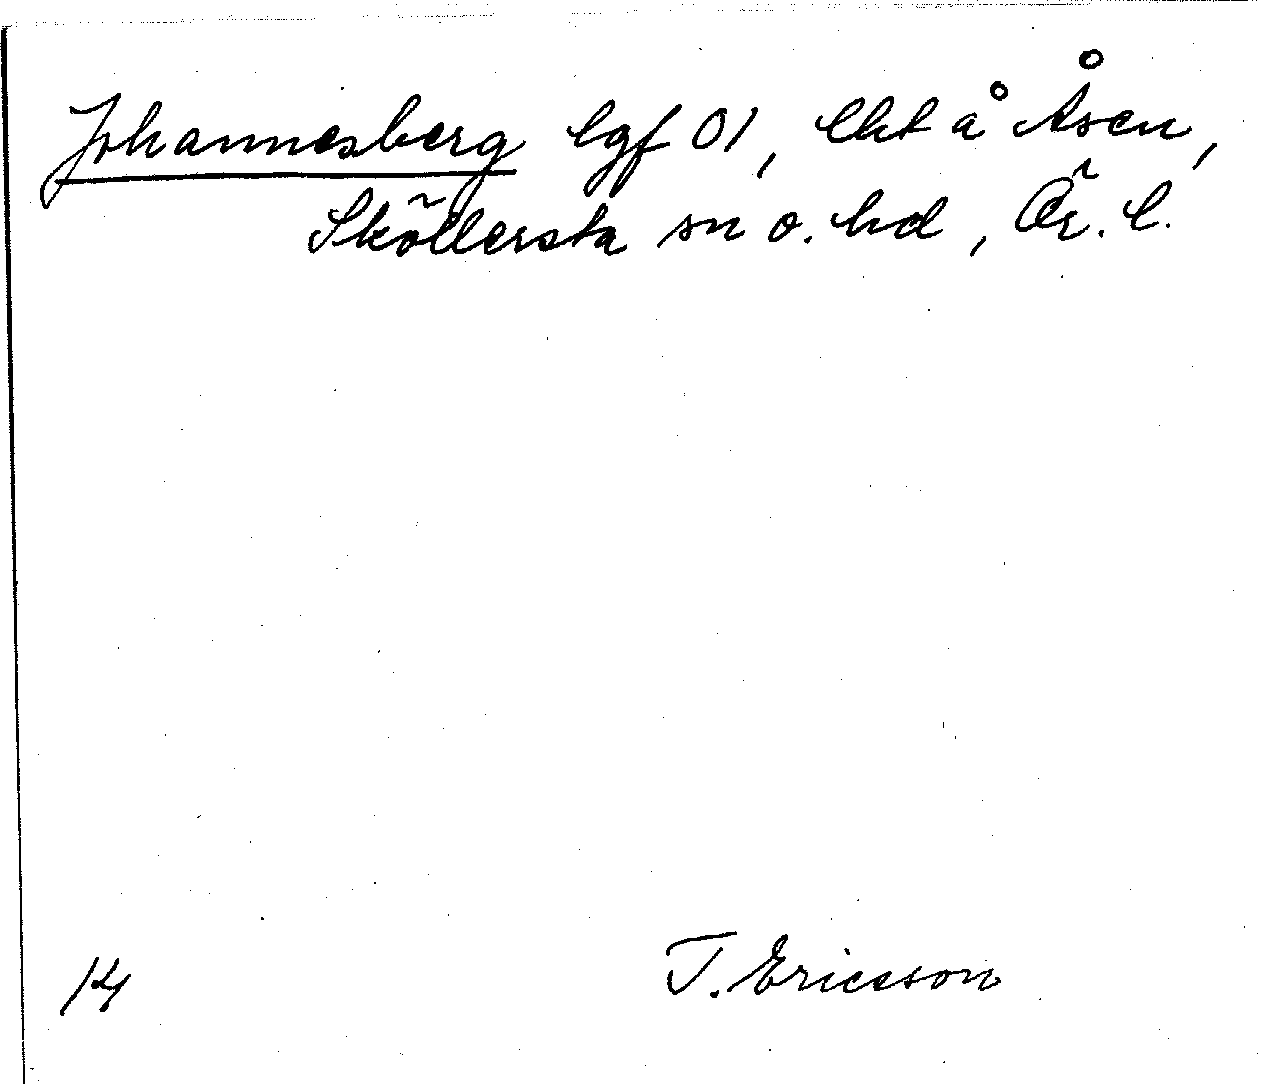 Johannesberg lgf 01, lht å Åsen,
Sköllersta sn o. hd, Ör. l.
14
T. Ericsson